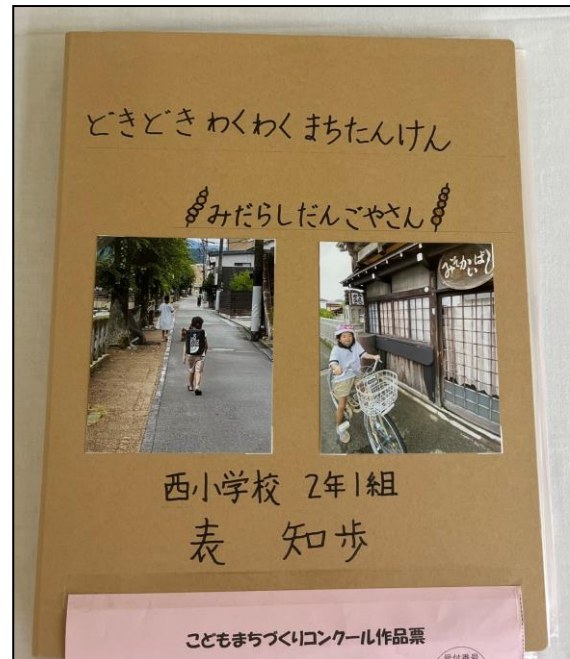 どきどき わくわく まちたんけん
みだらしだんごやさん
西小学校 2年1組
表 知歩
こどもまちづくりコンクール作品票
受付番号